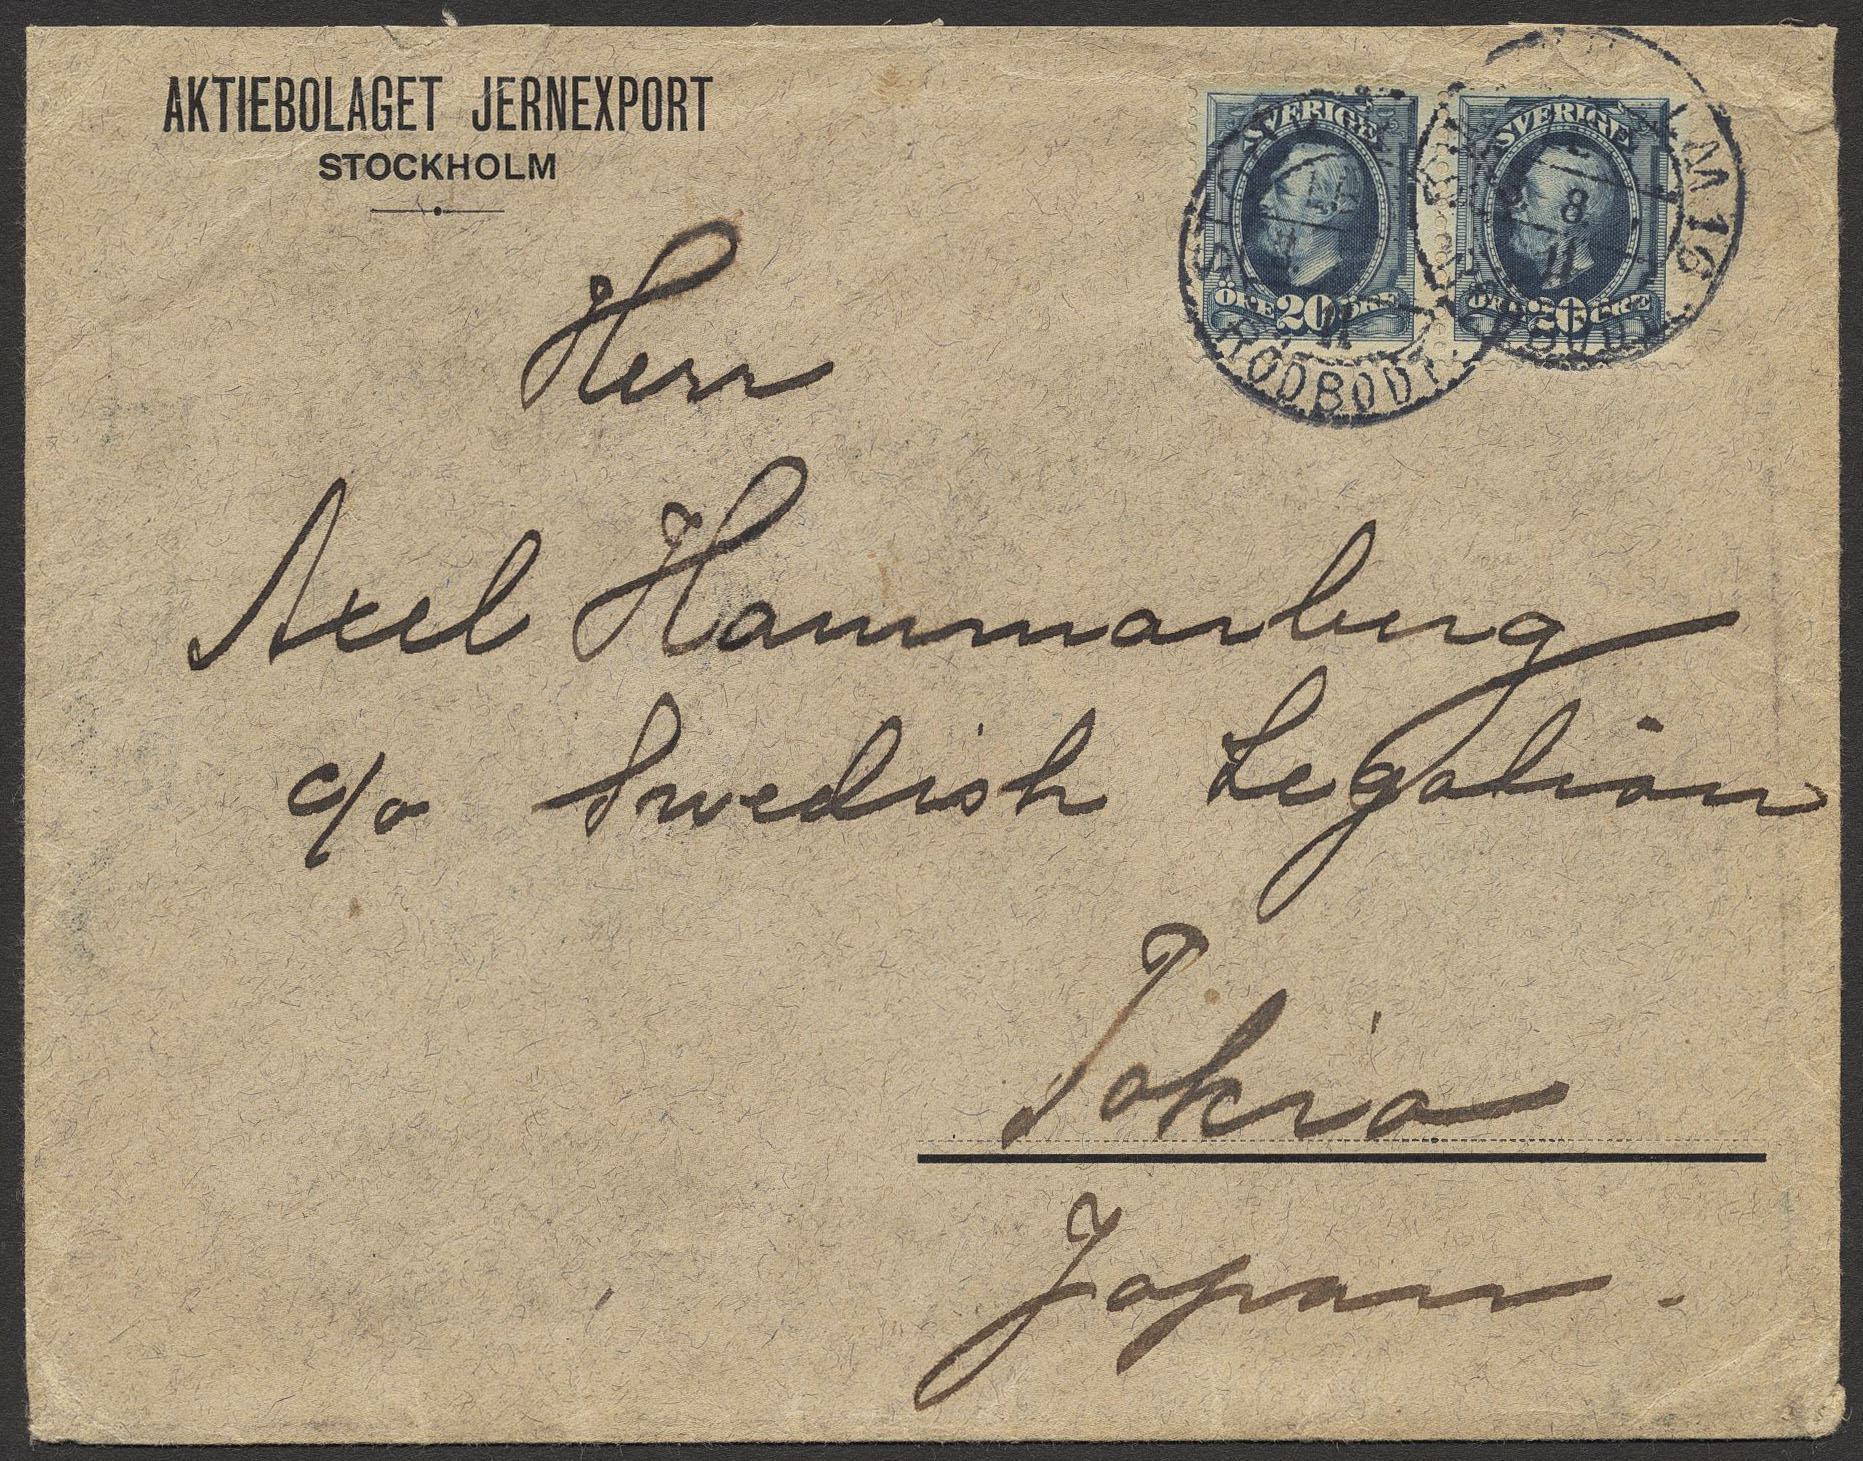 AKTIEBOLAGET JERNEXPORT
STOCKHOLM
SVERIGE
ÖRE 20 ÖRE
SVERIGE
ÖRE 20 ÖRE
LM 16
8
11
STO
FRODBODI
Herr
Axel Hammarberg
c/o Swedish Legation
Tokio
Japan.